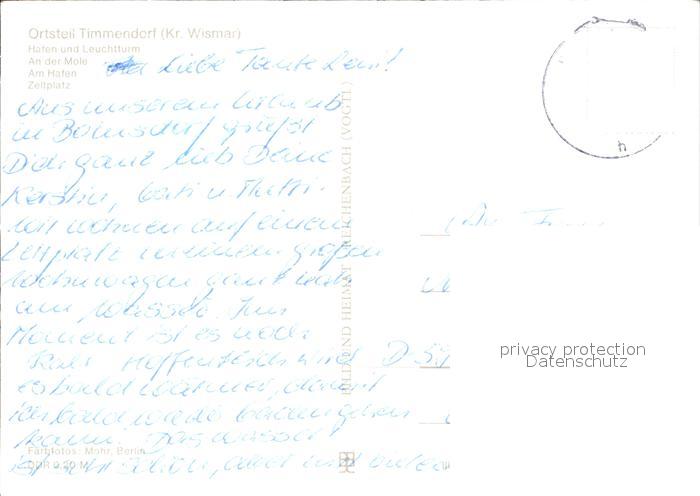 Ortsteil Timmendorf (Kr. Wismar)
Hafen und Leuchtturm
An der Mole
Am Hafen
Zeltplatz
Liebe Tante Leni!
Aus unserem Urlaub
in Boinsdorf grüßt
Dich ganz lieb Deine
Kerstin, u.
wir wohnen auf einem
Zeltplatz in einem großen
Wohnwagen ganz nah
am Wasser. Im
Moment ist es noch
kalt. Hoffentlich wird
es bald wärmer, damit
ich bald wieder baden gehen
kann. Das Wasser
ist sehr schön, aber
Farbfotos: Mohr, Berlin
DDR 0,20 M
BILD UND HEIMAT REICHENBACH (VOGTL)
An
D-59
privacy protection
Datenschutz